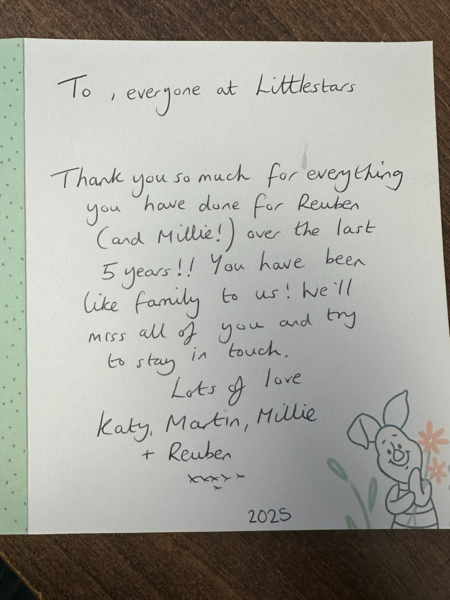 To , everyone at Littlestars
Thank you so much for everything
you have done for Reuben
(and Millie!) over the last
5 years!! You have been
like family to us! We'll
miss all of you and try
to stay in touch.
Lots of love
Katy, Martin, Millie
+ Reuben
xxxxx
2025